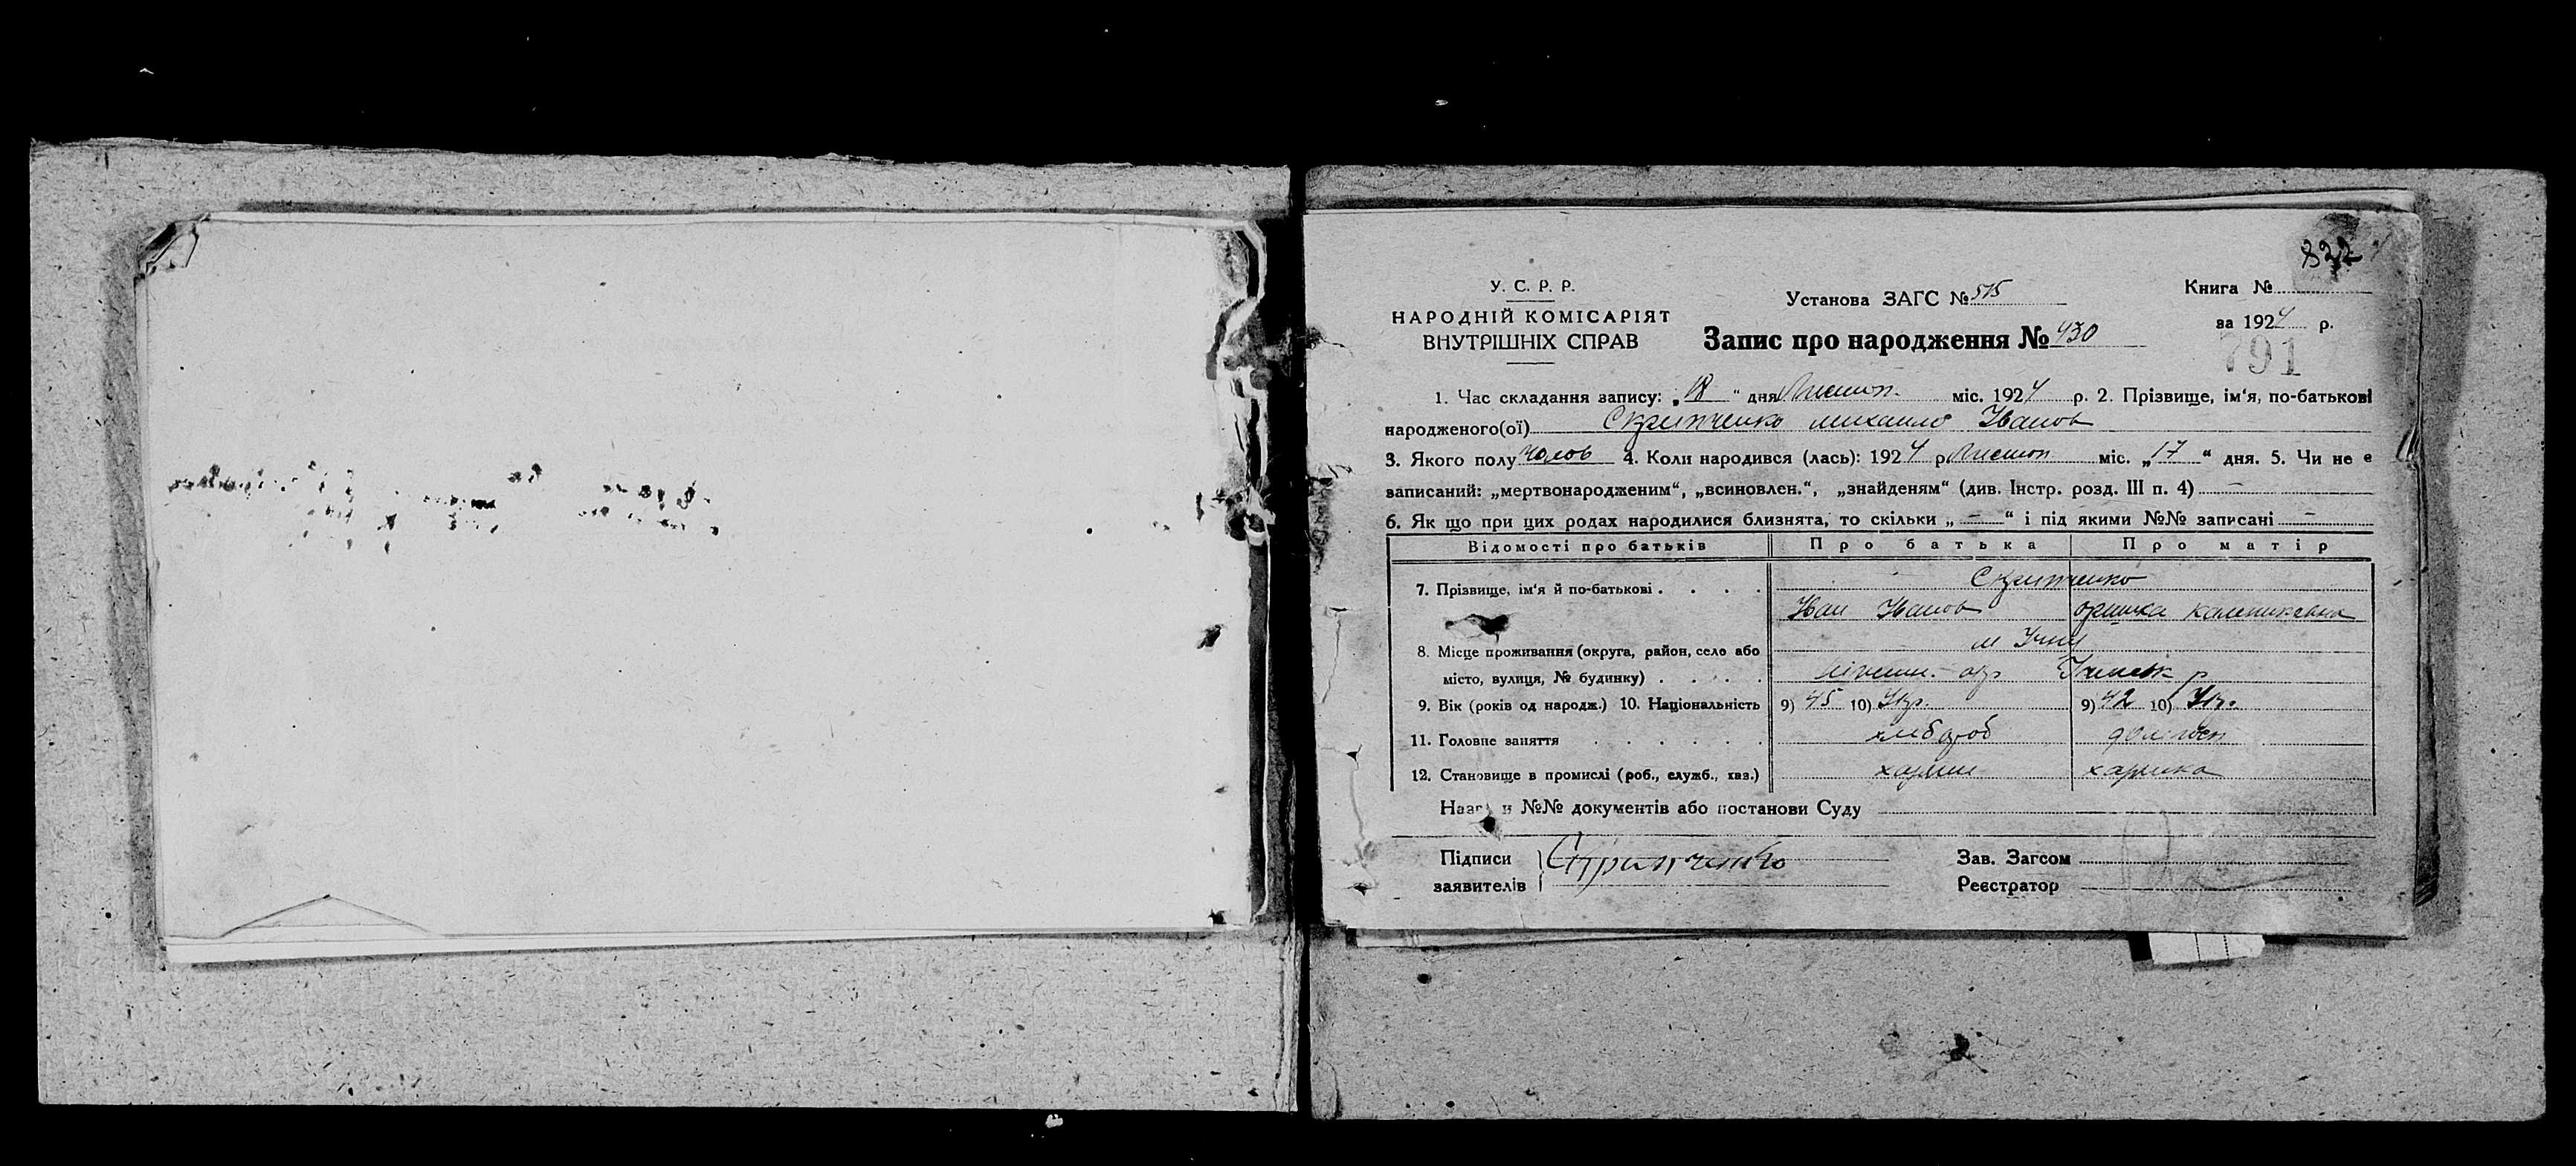 822
У. С. Р. Р.
НАРОДНІЙ КОМІСАРІЯТ
ВНУТРІШНІХ СПРАВ
Установа ЗАГС № 515
Запис про народження № 430
Книга №
за 1924 р.
791
1. Час складання запису: „18“ дня Листоп. міс. 1924 р. 2. Прізвище, ім‘я, по-батькові
народженого(ої) Скрипченко михаило Іванов
3. Якого полу чолов 4. Коли народився (лась): 1924 р Листоп міс. „17“ дня. 5. Чи не є
записаний: „мертвонародженим“, „всиновлен.“, „знайденям“ (див. Інстр. розд. III п. 4) —
6. Як що при цих родах народилися близнята, то скільки „ — “ і під якими №№ записані —
Відомості про батьків Про батька Про матір
7. Прізвище, ім‘я й по-батькові . . . . Скрипченко
Іван Іванов
8. Місце проживання (округа, район, село або м Ічня
місто, вулиця, № будинку) . . . . окр р
9. Вік (років од народж.) 10. Національність 9) 45 10) Укр. 9) 42 10) Укр.
11. Головне заняття . . . . . . хлібороб
12. Становище в промислі (роб., служб., хаз.)
Назв и №№ документів або постанови Суду
Підписи Скрипченко Зав. Загсом
заявителів Реєстратор